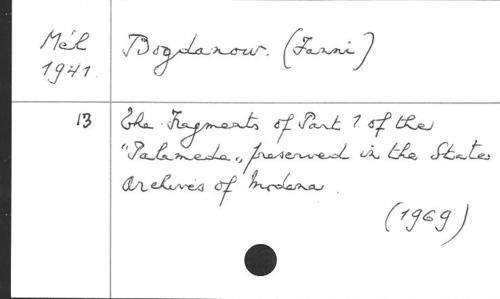 Mél Bogdanow. (Fanni)
1941.
13 The Fragments of Part 1 of the
"Palamède", preserved in the State
Archives of Modena.
(1969)